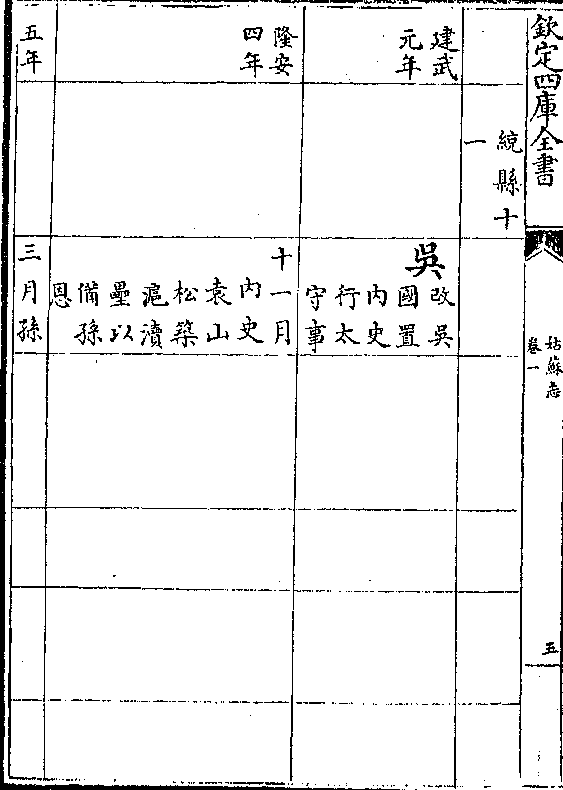 欽定四庫全書
姑蘇志
卷一
五
統縣十
一
建武
元年
吳
改吳
國置
內史
行太
守事
隆安
四年
十一月
內史
袁山
松築
滬瀆
壘以
備孫
恩
五年
三月孫